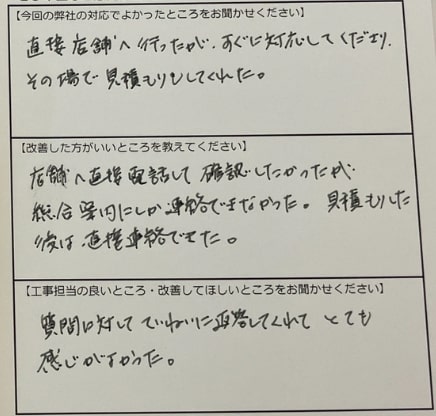 【今回の弊社の対応でよかったところをお聞かせください】
直接店舗へ行ったが、すぐに対応してくださり、
その場で見積もりもしてくれた。
【改善した方がいいところを教えてください】
店舗へ直接電話して確認したかったが、
総合案内にしか連絡できなかった。見積もりした
後は直接連絡できた。
【工事担当の良いところ・改善してほしいところをお聞かせください】
質問に対してていねいに返答してくれてとても
感じがよかった。